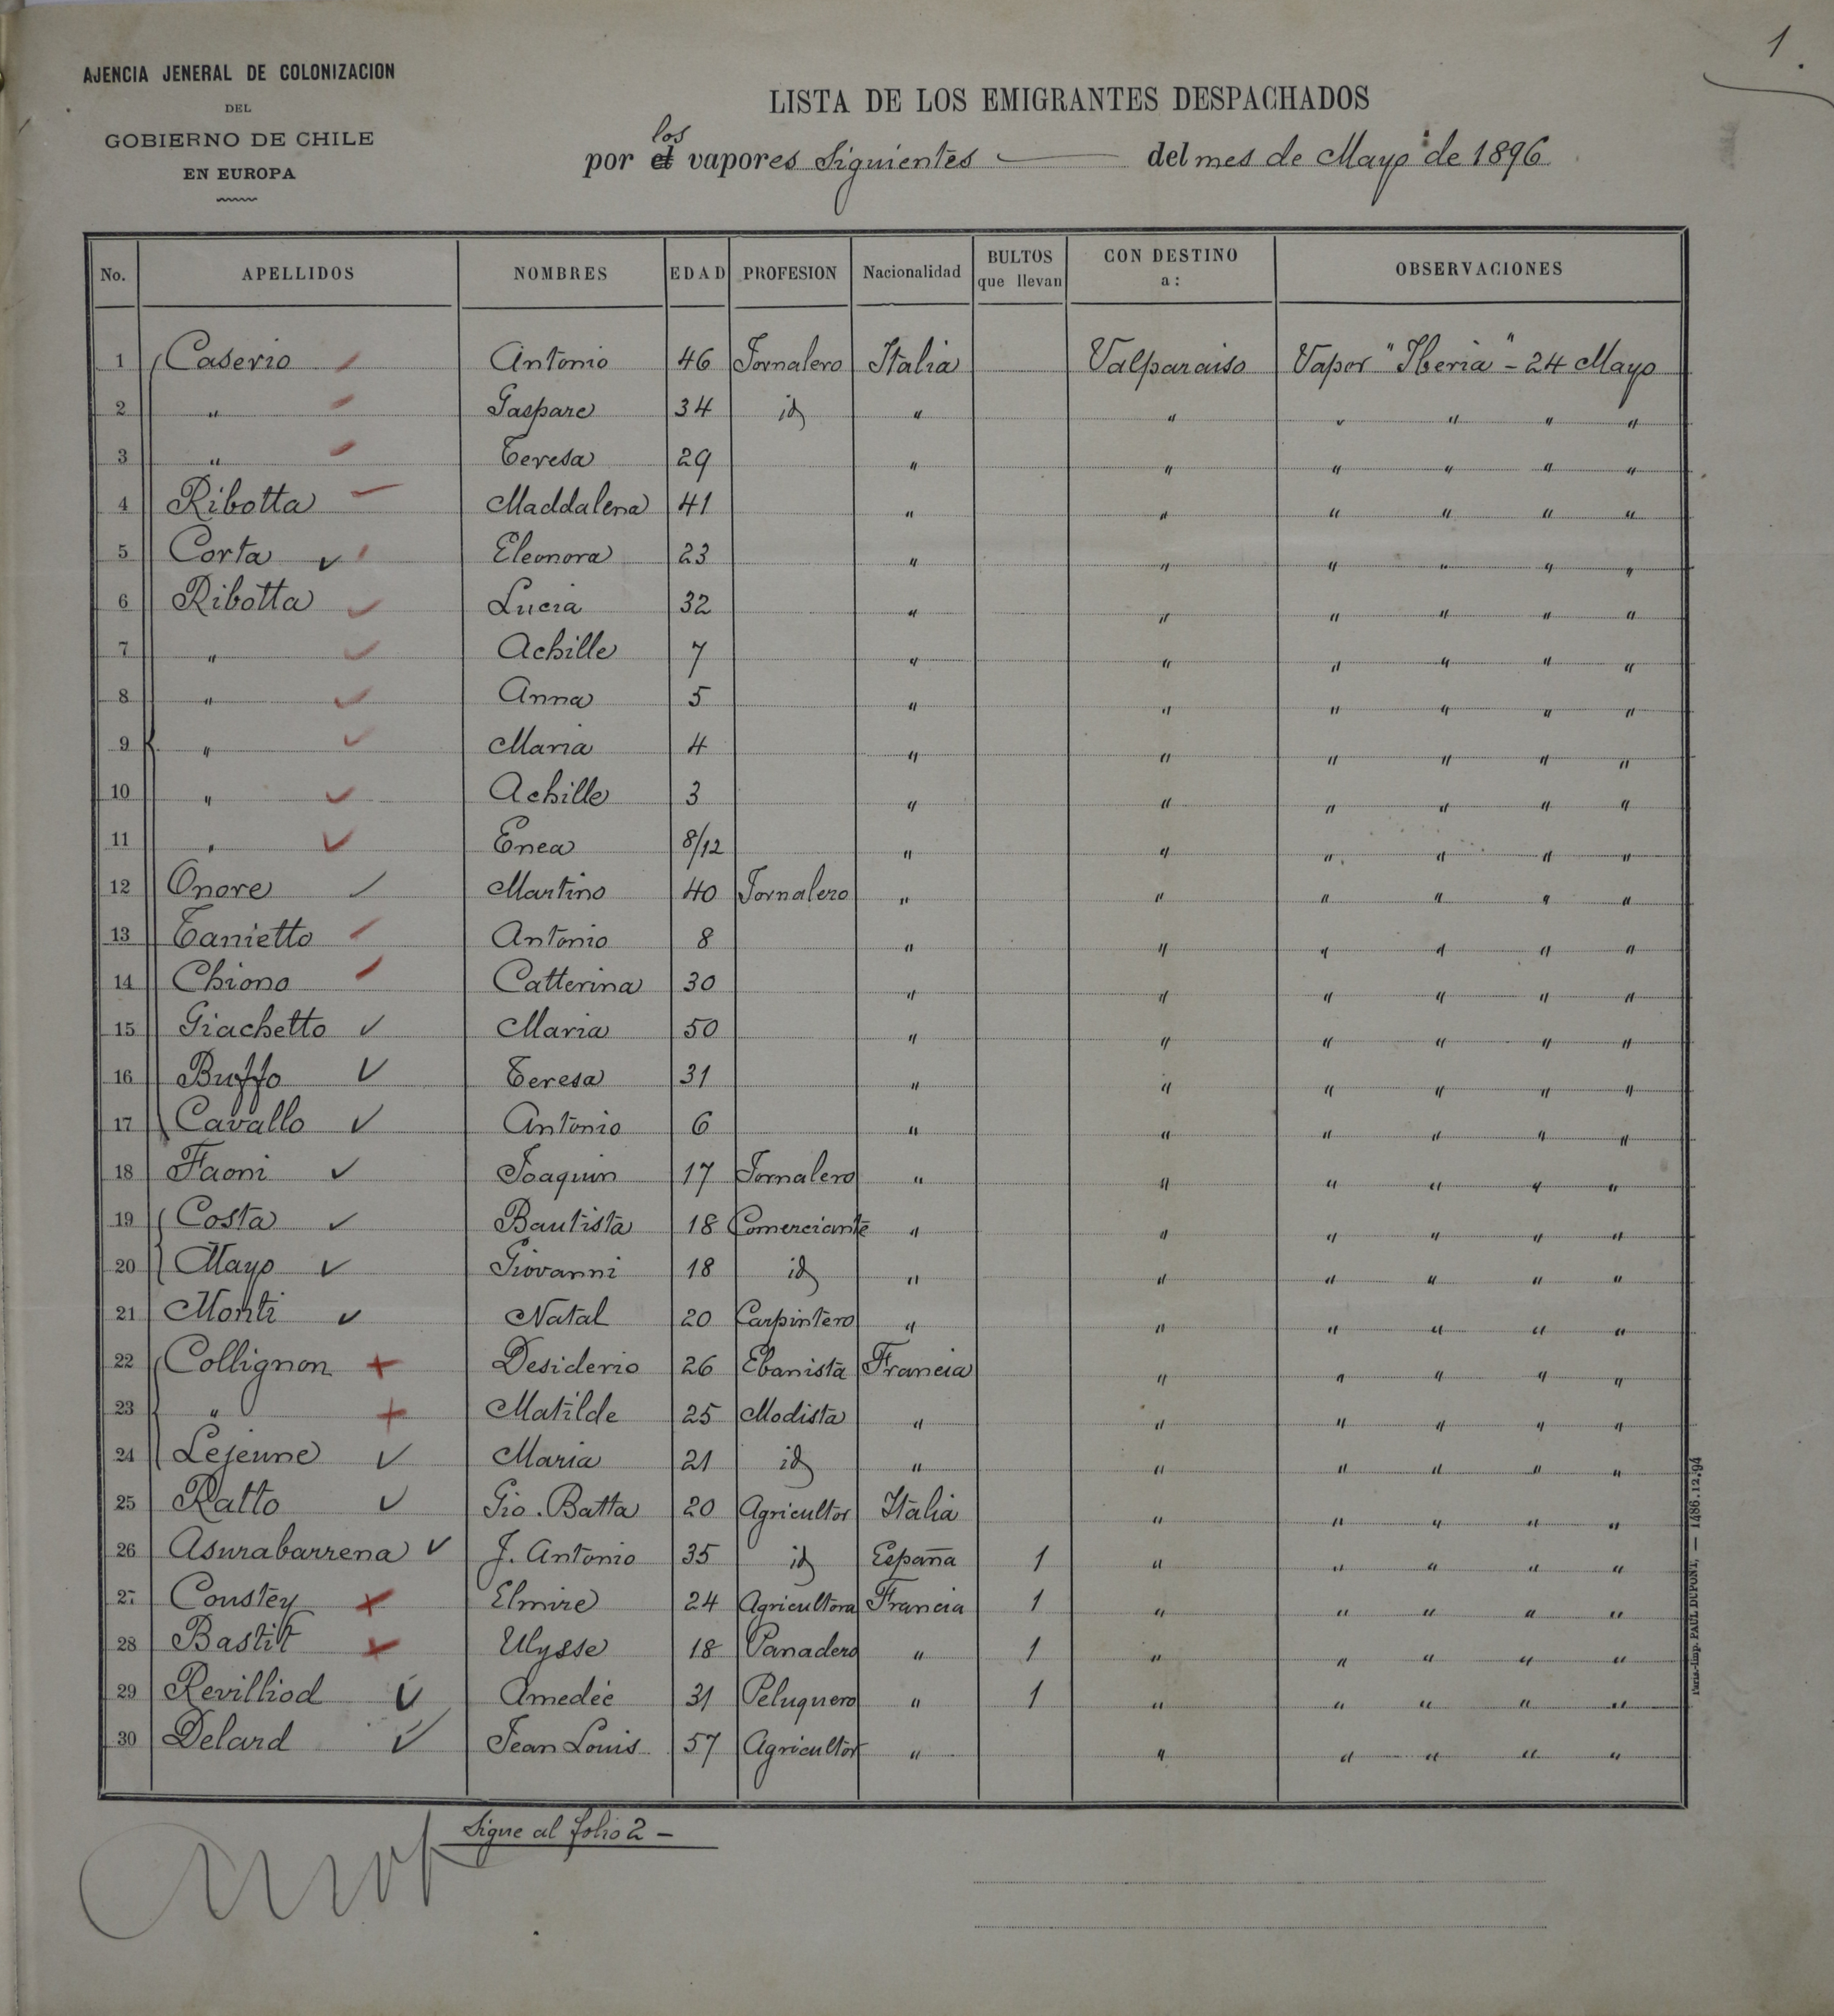 1.
AJENCIA JENERAL DE COLONIZACION
DEL
GOBIERNO DE CHILE
EN EUROPA
LISTA DE LOS EMIGRANTES DESPACHADOS
los
por el vapores Siguientes del mes de Mayo de 1896
No. APELLIDOS NOMBRES EDAD PROFESION Nacionalidad BULTOS que llevan CON DESTINO a: OBSERVACIONES
1 Caserio Antonio 46 Jornalero Italia Valparaiso Vapor "Iberia" - 24 Mayo
2 " Gaspare 34 id " " " " " "
3 " Teresa 29 " " " " " "
4 Ribotta Maddalena 41 " " " " " "
5 Corta Eleonora 23 " " " " " "
6 Ribotta Lucia 32 " " " " " "
7 " Achille 7 " " " " " "
8 " Anna 5 " " " " " "
9 " Maria 4 " " " " " "
10 " Achille 3 " " " " " "
11 " Enea 8/12 " " " " " "
12 Onore Martino 40 Jornalero " " " " " "
13 Tanietto Antonio 8 " " " " " "
14 Chiono Catterina 30 " " " " " "
15 Giachetto Maria 50 " " " " " "
16 Buffo Teresa 31 " " " " " "
17 Cavallo Antonio 6 " " " " " "
18 Faoni Joaquin 17 Jornalero " " " " " "
19 Costa Bautista 18 Comerciante " " " " " "
20 Mayo Giovanni 18 id " " " " " "
21 Monti Natal 20 Carpintero " " " " " "
22 Collignon Desiderio 26 Ebanista Francia " " " " "
23 " Matilde 25 Modista " " " " " "
24 Lejeune Maria 21 id " " " " " "
25 Ratto Gio. Batta 20 Agricultor Italia " " " " "
26 Asurabarrena J. Antonio 35 id España 1 " " " " "
27 Coustey Elmire 24 Agricultora Francia 1 " " " " "
28 Bastit Ulysse 18 Panadero " 1 " " " " "
29 Revilliod Amedée 31 Peluquero " 1 " " " " "
30 Delard Jean Louis 57 Agricultor " " " " " "
Sigue al folio 2 -
Paris.-Imp. PAUL DUPONT, — 1486.12.94